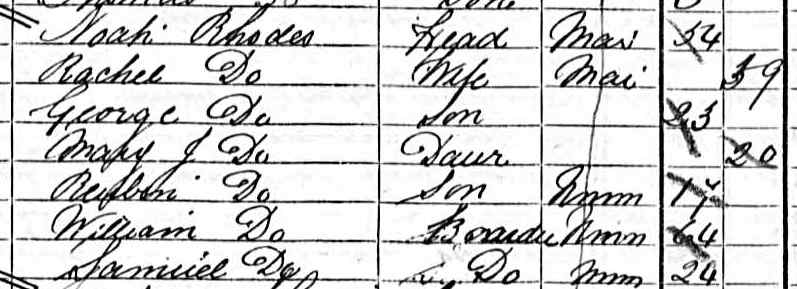 Noah Rhodes Head Mar 54
Rachel Do Wife Mar 59
George Do Son 23
Mary J Do Daur 20
Reuben Do Son Unm 17
William Do Boarder Unm 64
Samuel Do Do Unm 24